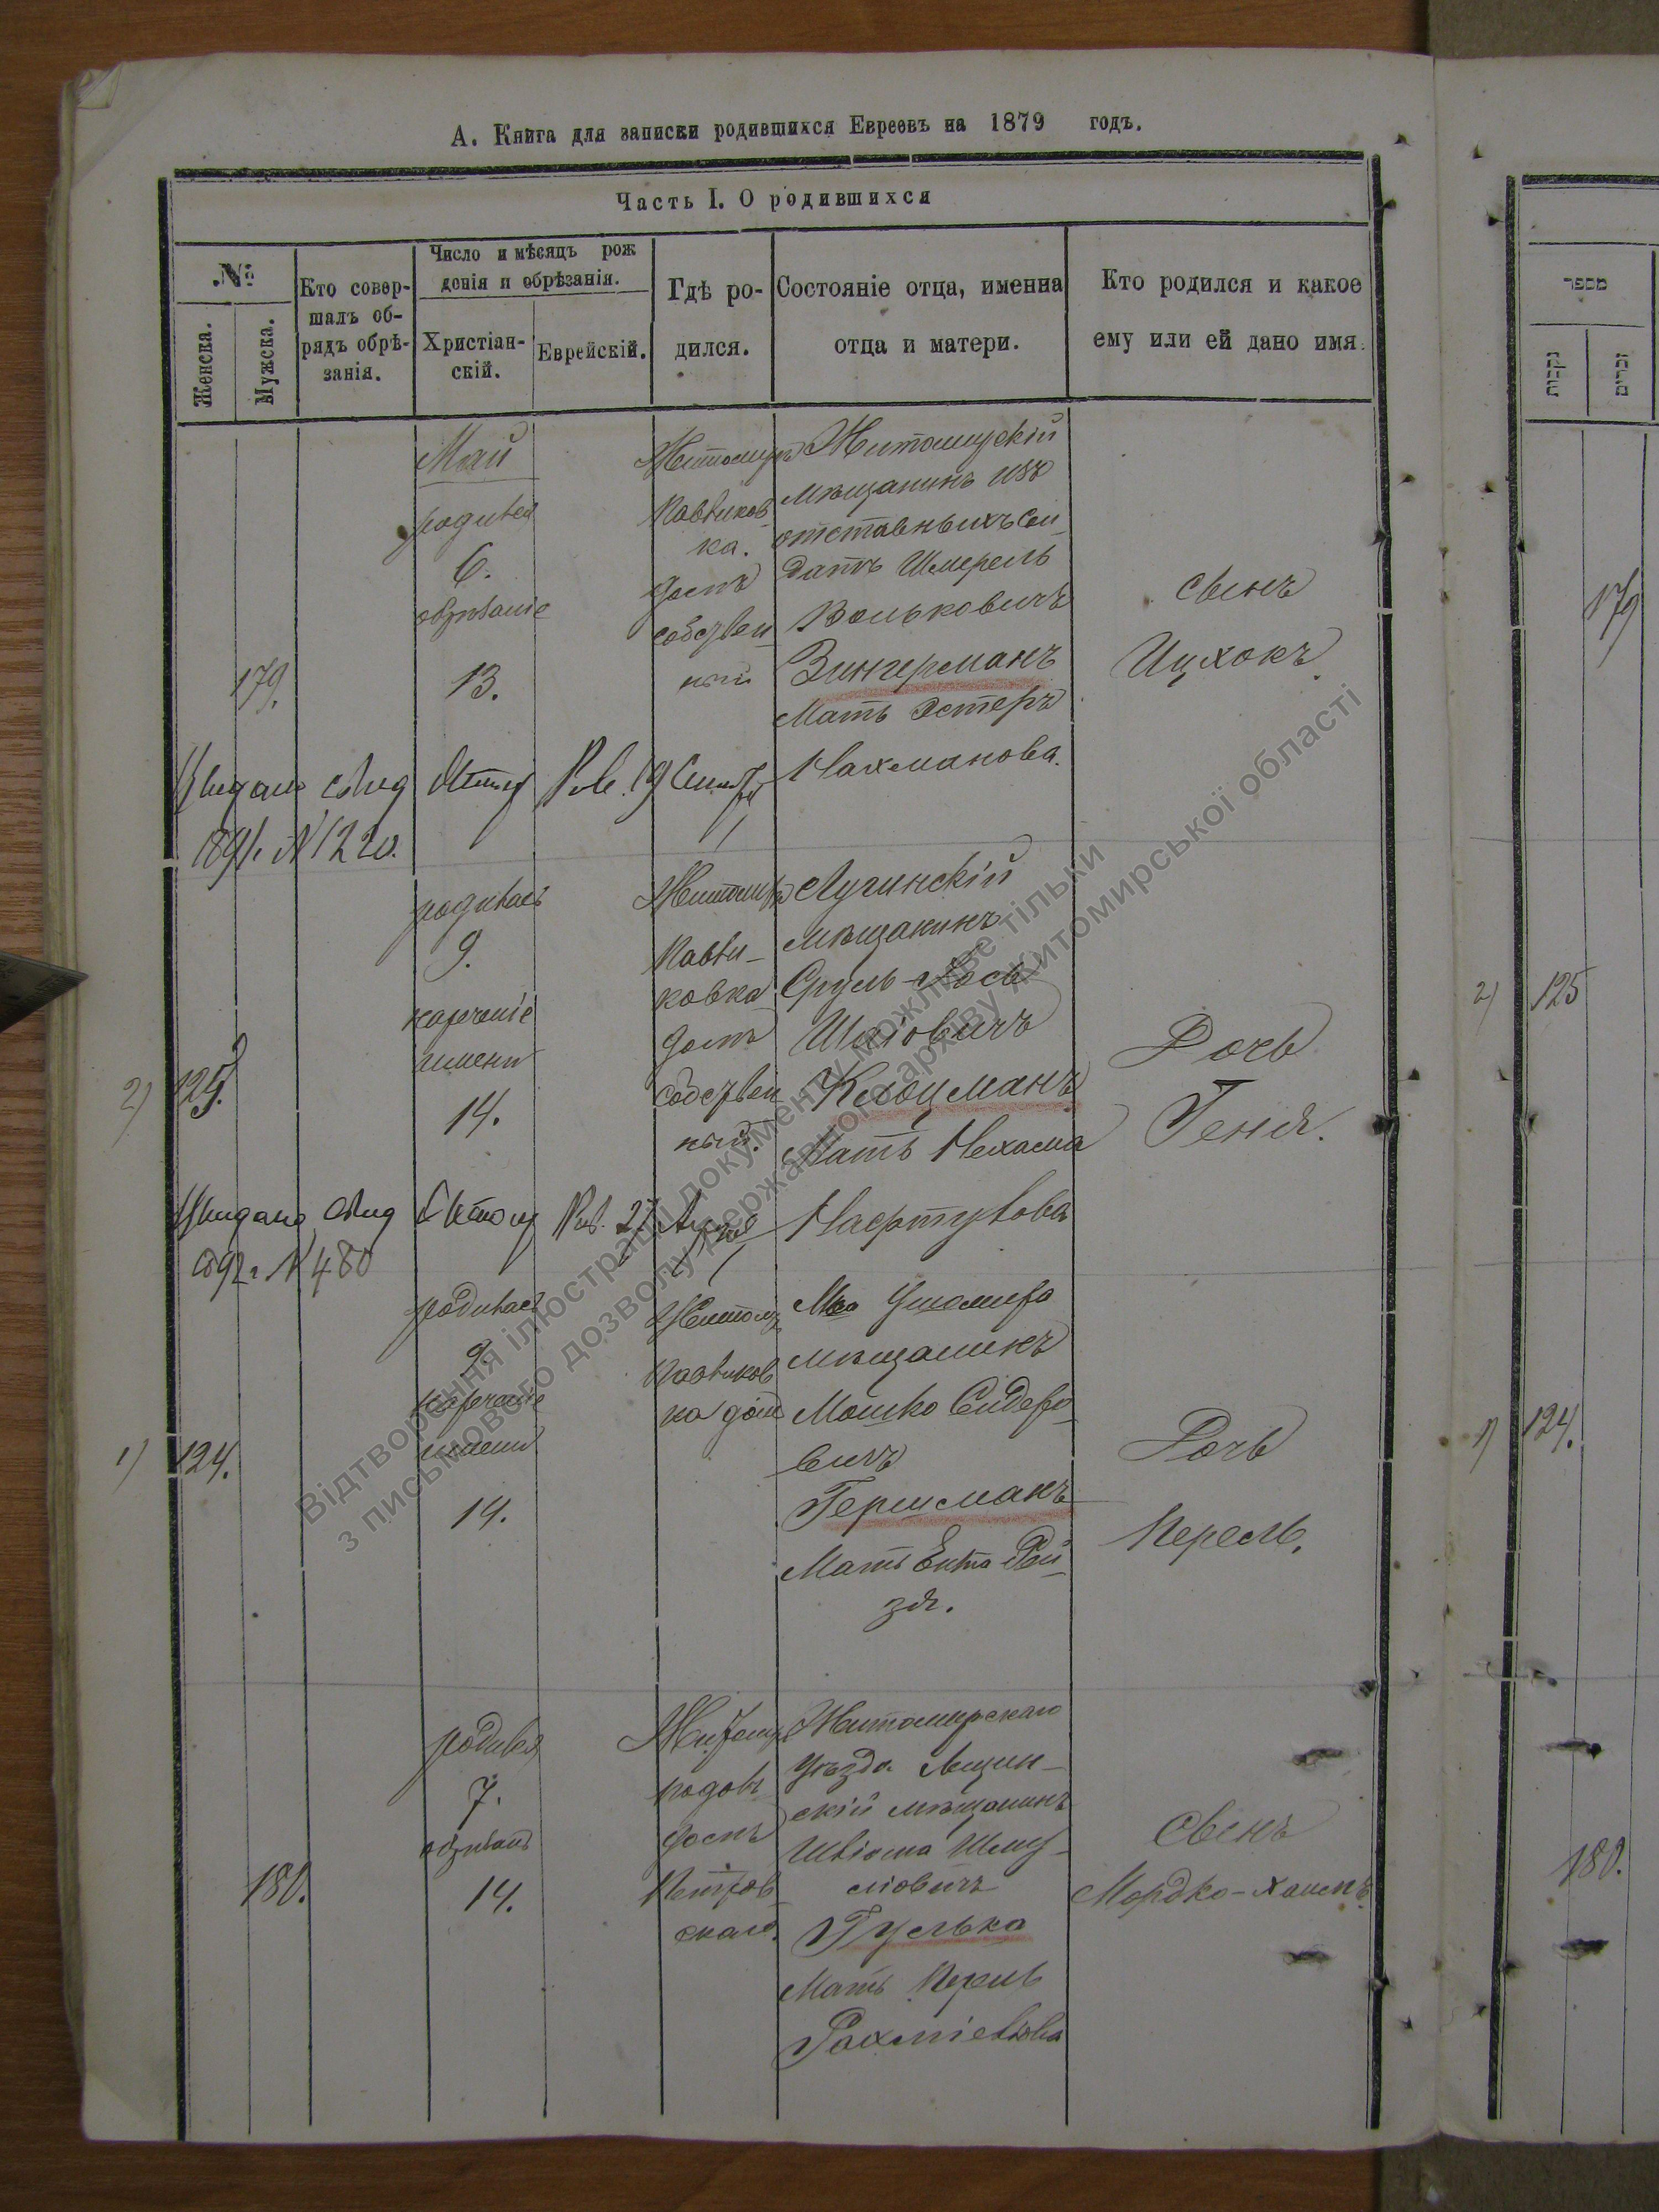 А. Книга для записки родившихся Евреевъ на 1879 годъ.
Часть I. О родившихся
№
Женска.
Мужска.
Кто совер-
шалъ об-
рядъ обрѣ-
занія.
Число и мѣсяцъ рож
денія и обрѣзанія.
Христіан-
скій.
Еврейскій.
Гдѣ ро-
дился.
Состояніе отца, именна
отца и матери.
Кто родился и какое
ему или ей дано имя.
179.
Май
родился
6.
обрѣзаніе
13.
Житомиръ
ка.
домъ
собствен
ный
Житомирскій
мѣщанинъ изъ
отставныхъ сол
датъ Шмерель
Вольковичъ
Зингерманъ
Мать Эстеръ
Нахманова.
сынъ
Ицхокъ
Выдана свид
1891. N 1220.
2) 125.
родилась
9.
нареченіе
имени
14.
Житомиръ
ковка
домъ
собствен
ный.
Лугинскій
мѣщанинъ
Сруль-Іось
Шліовичъ
Клоцманъ
Мать Нехама
Нафтулова
Дочь
Геня.
Выдана свид
N 480
1) 124.
родилась
9.
нареченіе
имени
14.
Житомир
ка домъ
Мка Ушомира
мѣщанинъ
Мошко Сидеро
вичъ
Гершманъ
Мать Ента Рей
зя.
Дочь
Перель.
180.
родился
7.
обрѣзанъ
14.
Житомиръ
домъ
Петров
скаго.
Житомирскаго
уѣзда Лещин-
скій мѣщанинъ
Шліома Шму-
ліовичъ
Гулька
Мать Перель
Рахміелова
сынъ
Мордко-Хаимъ
מספר
נקבות
זכרים
179
2) 125
1) 124.
180.
Відтворення ілюстрації документу можливе тільки
з письмового дозволу державного архіву Житомирської області